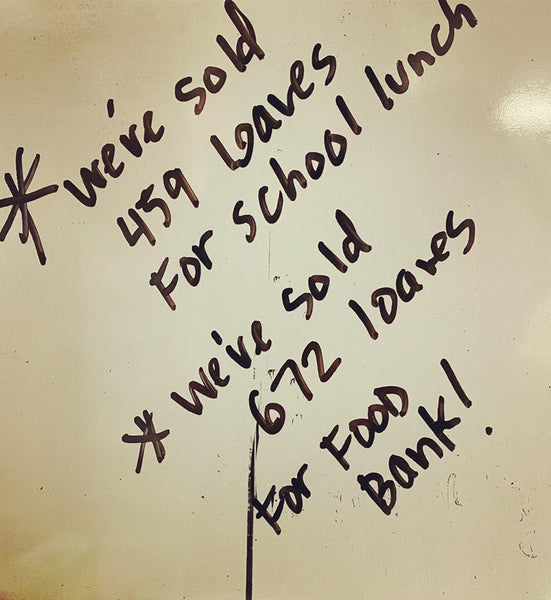 * we've sold
459 loaves
For school lunch
* we've sold
672 loaves
For FOOD
Bank!